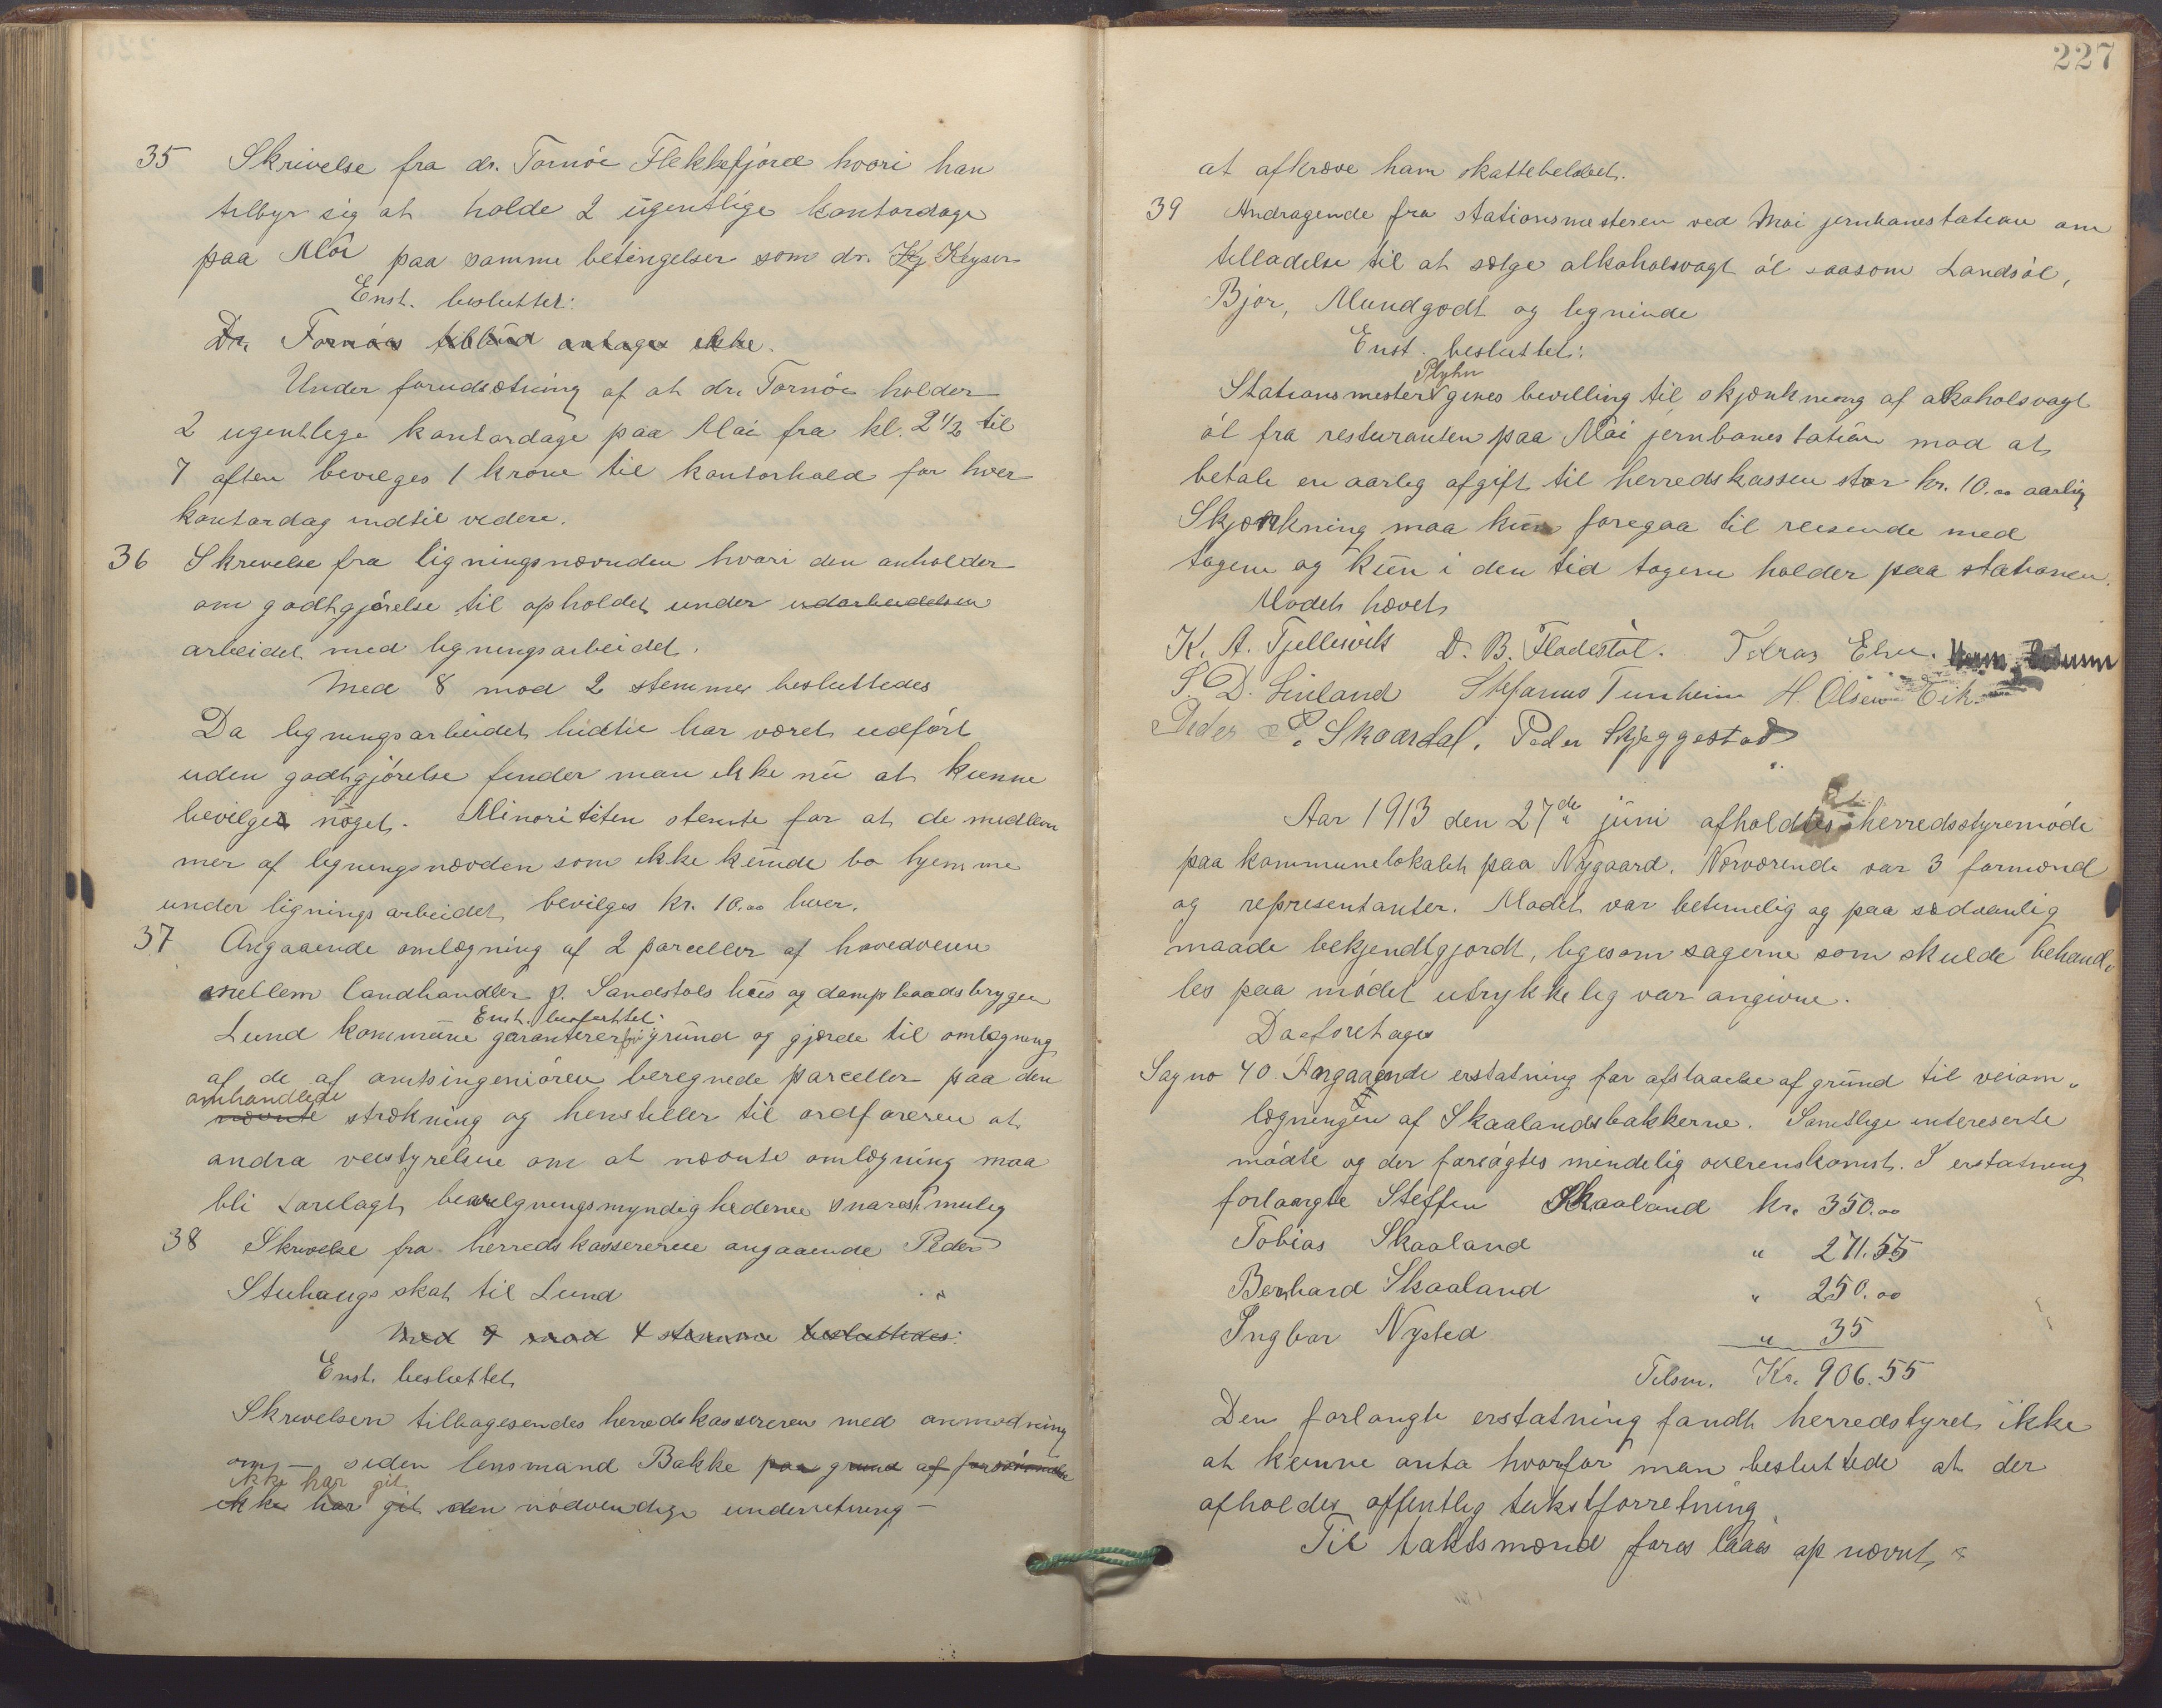 35 Skrivelse fra dr. Tornöe Flekkefjord hvori han
tilbyr sig at holde 2 ugentlige kontordage
paa Moi paa samme betingelser som dr. Ky Keyser
Enst. besluttet:
Dr. Tornöes tilbud antages ikke.
Under forudsætning af at dr. Tornöe holder
2 ugentlege kontordage paa Moi fra kl. 2 1/2 til
7 aften bevilges 1 krone til kontorhold for hver
kontordag indtil videre.
36 Skrivelse fra ligningsnævnden hvori den anholder
om godtgjörelse til opholdet under udarbeidelsen
arbeidet med ligningsarbeidet.
Med 8 mod 2 stemmer besluttedes
Da ligningsarbeidet hidtil har været udfört
uden godtgjörelse finder man ikke nu at kunne
bevilges noget. Minoriteten stemte for at de medlem
mer af ligningsnævden som ikke kunde bo hjemme
under ligningsarbeidet bevilges kr. 10.00 hver.
37 Angaaende omlægning af 2 parceller af hovedveien
mellem landhandler P. Sandstøls hus og dampbaadsbryggen
Enst. besluttet:
Lund kommune garanterer fri grund og gjærde til omlægning
af de af amtsingeniören beregnede parceller paa den
omhandlede
nævnte strækning og henstiller til ordföreren at
andra veistyrelsene om at nævnte omlægning maa
bli forelagt bevilgningsmyndighederne snarest mulig
38 Skrivelse fra herredskassereren angaaende Peder
Stuhaugs skat til Lund
Med 9 mod 4 stemme besluttedes:
Enst. besluttet
Skrivelsen tilbagesendes herredskassereren med anmodning
om – siden lensmand Bakke paa grund af
ikke har git
ikke har git den nödvendige underretning –
227
at afkræve ham skattebeløbet.
39 Andragende fra stationsmesteren ved Moi jernbanestation om
tilladelse til at sælge alkoholsvagt öl saasom Landsöl,
Bjor, Mundgodt og lignende
Enst. besluttet:
Plyhn
Stationsmester gives bevilling til skjænkning af alkoholsvagt
öl fra resturanten paa Moi jernbanestation mod at
betale en aarlig afgift til herredskassen stor kr. 10.00 aarlig
Skjænkning maa kun foregaa til reisende med
togene og kun i den tid togene holder paa stationen.
Mödet hævet
K. A. Tjellesvik D. B. Fladestøl. Tobias Eken.
S. D. Linland Stefanus Tunheim H. Olsen Eik.
Peder P. Skaardal. Peder Skjeggestad
Aar 1913 den 27de juni afholdtes herredsstyremöde
paa kommunelokalet paa Nygaard. Nærværende var 3 formænd
og representanter. Mödet var betimelig og paa sædvanlig
maade bekjendtgjordt, ligesom sagerne som skulde behand„
les paa mödet utrykkelig var angivne.
Da foretages
Sag no 40. Angaaende erstatning for afstaaelse af grund til veiom„
lægningen af Skaalandsbakkerne. Samtlige intereserte
mödte og der forsögtes mindelig overenskomst. I erstatning
forlangte Steffen Skaaland kr. 350.00
Tobias Skaaland " 271.55
Bernhard Skaaland " 250.00
Ingbor Nysted " 35
Tilsm. Kr. 906.55
Den forlangte erstatning fandt herredstyret ikke
at kunne anta hvorfor man besluttede at der
afholdes offentlig takstforretning
Til takstmænd foreslaaes opnævnt